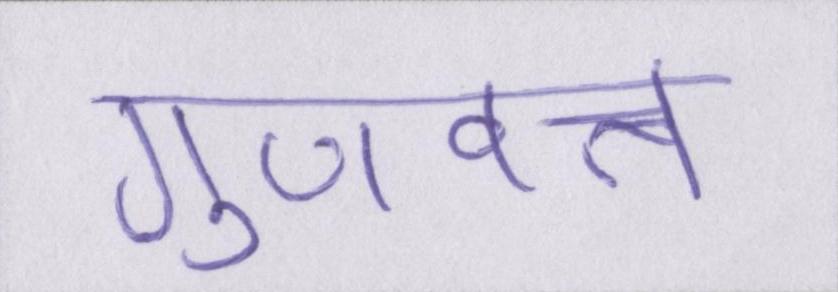 गुणवत्त